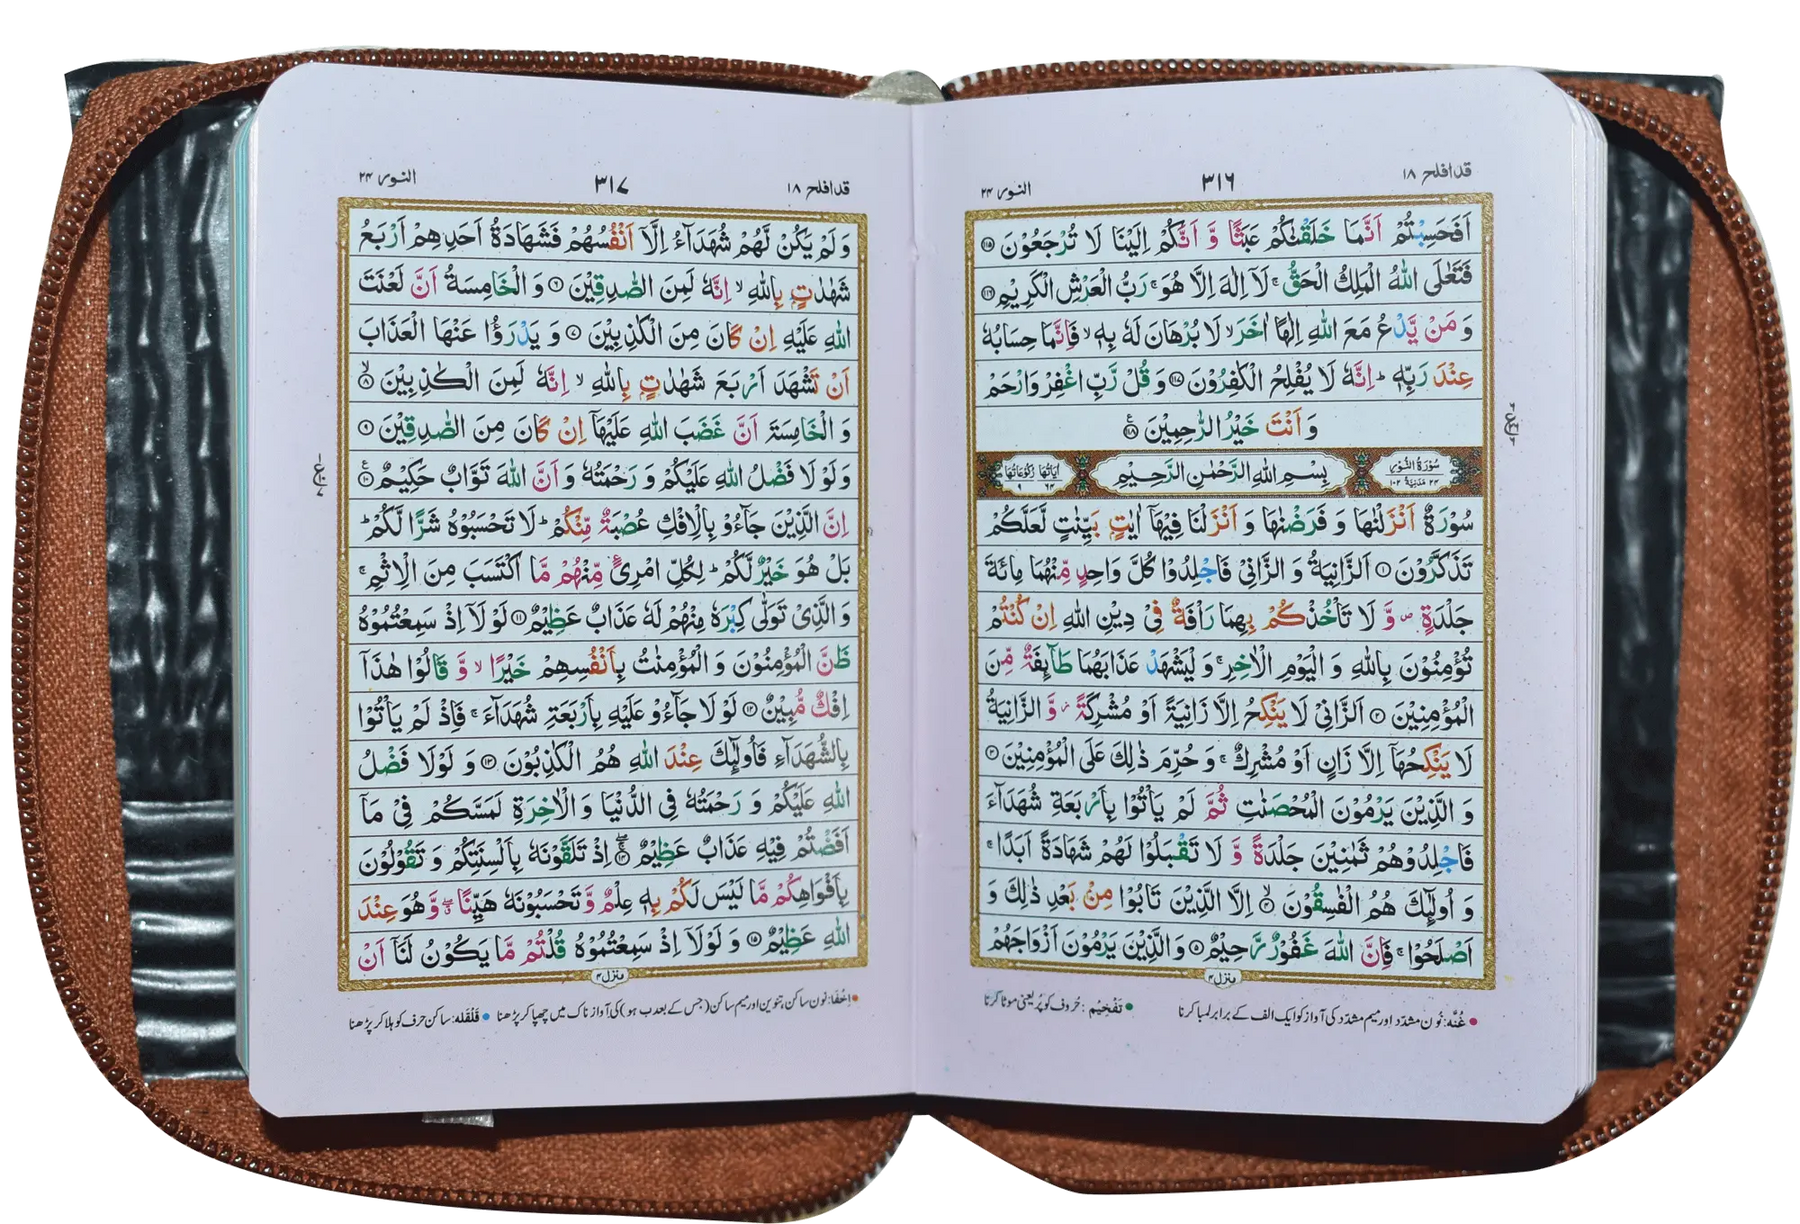 قد افلح ١٨
٣١٦
النور ٢٤
اَفَحَسِبْتُمْ اَنَّمَا خَلَقْنٰكُمْ عَبَثًا وَّ اَنَّكُمْ اِلَيْنَا لَا تُرْجَعُوْنَ ١١٥
فَتَعٰلَى اللّٰهُ الْمَلِكُ الْحَقُّ ۚ لَاۤ اِلٰهَ اِلَّا هُوَ ۚ رَبُّ الْعَرْشِ الْكَرِيْمِ ١١٦
وَ مَنْ يَّدْعُ مَعَ اللّٰهِ اِلٰهًا اٰخَرَ ۙ لَا بُرْهَانَ لَهٗ بِهٖ ۙ فَاِنَّمَا حِسَابُهٗ
عِنْدَ رَبِّهٖ ؕ اِنَّهٗ لَا يُفْلِحُ الْكٰفِرُوْنَ ١١٧ وَ قُلْ رَّبِّ اغْفِرْ وَارْحَمْ
وَ اَنْتَ خَيْرُ الرّٰحِمِيْنَ ١١٨
سُوْرَةُ النُّوْرِ
٢٤ مَدَنِيَّةٌ ١٠٢
بِسْمِ اللّٰهِ الرَّحْمٰنِ الرَّحِيْمِ
اٰيَاتُهَا رُكُوْعَاتُهَا
٦٤ ٩
سُوْرَةٌ اَنْزَلْنٰهَا وَ فَرَضْنٰهَا وَ اَنْزَلْنَا فِيْهَاۤ اٰيٰتٍۭ بَيِّنٰتٍ لَّعَلَّكُمْ
تَذَكَّرُوْنَ ١ اَلزَّانِيَةُ وَ الزَّانِيْ فَاجْلِدُوْا كُلَّ وَاحِدٍ مِّنْهُمَا مِائَةَ
جَلْدَةٍ ۪ وَّ لَا تَاْخُذْكُمْ بِهِمَا رَاْفَةٌ فِيْ دِيْنِ اللّٰهِ اِنْ كُنْتُمْ
تُؤْمِنُوْنَ بِاللّٰهِ وَ الْيَوْمِ الْاٰخِرِ ۚ وَ لْيَشْهَدْ عَذَابَهُمَا طَآىِٕفَةٌ مِّنَ
الْمُؤْمِنِيْنَ ٢ اَلزَّانِيْ لَا يَنْكِحُ اِلَّا زَانِيَةً اَوْ مُشْرِكَةً ۫ وَّ الزَّانِيَةُ
لَا يَنْكِحُهَاۤ اِلَّا زَانٍ اَوْ مُشْرِكٌ ۚ وَ حُرِّمَ ذٰلِكَ عَلَى الْمُؤْمِنِيْنَ ٣
وَ الَّذِيْنَ يَرْمُوْنَ الْمُحْصَنٰتِ ثُمَّ لَمْ يَاْتُوْا بِاَرْبَعَةِ شُهَدَآءَ
فَاجْلِدُوْهُمْ ثَمٰنِيْنَ جَلْدَةً وَّ لَا تَقْبَلُوْا لَهُمْ شَهَادَةً اَبَدًا ۚ
وَ اُولٰٓىِٕكَ هُمُ الْفٰسِقُوْنَ ٤ۙ اِلَّا الَّذِيْنَ تَابُوْا مِنْۢ بَعْدِ ذٰلِكَ وَ
اَصْلَحُوْا ۚ فَاِنَّ اللّٰهَ غَفُوْرٌ رَّحِيْمٌ ٥ وَ الَّذِيْنَ يَرْمُوْنَ اَزْوَاجَهُمْ
منزل ٤
غُنَّه: نُون مشدّد اور میم مشدّد کی آواز کو ایک الف کے برابر لمبا کرنا
تَفْخِیْم: حُروف کو پُر یعنی موٹا کرنا
قد افلح ١٨
٣١٧
النور ٢٤
وَ لَمْ يَكُنْ لَّهُمْ شُهَدَآءُ اِلَّاۤ اَنْفُسُهُمْ فَشَهَادَةُ اَحَدِهِمْ اَرْبَعُ
شَهٰدٰتٍۭ بِاللّٰهِ ۙ اِنَّهٗ لَمِنَ الصّٰدِقِيْنَ ٦ وَ الْخَامِسَةُ اَنَّ لَعْنَتَ
اللّٰهِ عَلَيْهِ اِنْ كَانَ مِنَ الْكٰذِبِيْنَ ٧ وَ يَدْرَؤُا عَنْهَا الْعَذَابَ
اَنْ تَشْهَدَ اَرْبَعَ شَهٰدٰتٍۭ بِاللّٰهِ ۙ اِنَّهٗ لَمِنَ الْكٰذِبِيْنَ ٨ۙ
وَ الْخَامِسَةَ اَنَّ غَضَبَ اللّٰهِ عَلَيْهَاۤ اِنْ كَانَ مِنَ الصّٰدِقِيْنَ ٩
وَ لَوْ لَا فَضْلُ اللّٰهِ عَلَيْكُمْ وَ رَحْمَتُهٗ وَ اَنَّ اللّٰهَ تَوَّابٌ حَكِيْمٌ ١٠
اِنَّ الَّذِيْنَ جَآءُوْ بِالْاِفْكِ عُصْبَةٌ مِّنْكُمْ ؕ لَا تَحْسَبُوْهُ شَرًّا لَّكُمْ ؕ
بَلْ هُوَ خَيْرٌ لَّكُمْ ؕ لِكُلِّ امْرِئٍ مِّنْهُمْ مَّا اكْتَسَبَ مِنَ الْاِثْمِ ۚ
وَ الَّذِيْ تَوَلّٰى كِبْرَهٗ مِنْهُمْ لَهٗ عَذَابٌ عَظِيْمٌ ١١ لَوْ لَاۤ اِذْ سَمِعْتُمُوْهُ
ظَنَّ الْمُؤْمِنُوْنَ وَ الْمُؤْمِنٰتُ بِاَنْفُسِهِمْ خَيْرًا ۙ وَّ قَالُوْا هٰذَاۤ
اِفْكٌ مُّبِيْنٌ ١٢ لَوْ لَا جَآءُوْ عَلَيْهِ بِاَرْبَعَةِ شُهَدَآءَ ۚ فَاِذْ لَمْ يَاْتُوْا
بِالشُّهَدَآءِ فَاُولٰٓىِٕكَ عِنْدَ اللّٰهِ هُمُ الْكٰذِبُوْنَ ١٣ وَ لَوْ لَا فَضْلُ
اللّٰهِ عَلَيْكُمْ وَ رَحْمَتُهٗ فِي الدُّنْيَا وَ الْاٰخِرَةِ لَمَسَّكُمْ فِيْ مَاۤ
اَفَضْتُمْ فِيْهِ عَذَابٌ عَظِيْمٌ ١٤ اِذْ تَلَقَّوْنَهٗ بِاَلْسِنَتِكُمْ وَ تَقُوْلُوْنَ
بِاَفْوَاهِكُمْ مَّا لَيْسَ لَكُمْ بِهٖ عِلْمٌ وَّ تَحْسَبُوْنَهٗ هَيِّنًا ۖۗ وَّ هُوَ عِنْدَ
اللّٰهِ عَظِيْمٌ ١٥ وَ لَوْ لَاۤ اِذْ سَمِعْتُمُوْهُ قُلْتُمْ مَّا يَكُوْنُ لَنَاۤ اَنْ
منزل ٤
اِخْفَا: نُون ساکن، تنوین اور میم ساکن (جس کے بعد ب ہو) کی آواز ناک میں چھپا کر پڑھنا
قَلْقَلَه: ساکن حرف کو ہلا کر پڑھنا